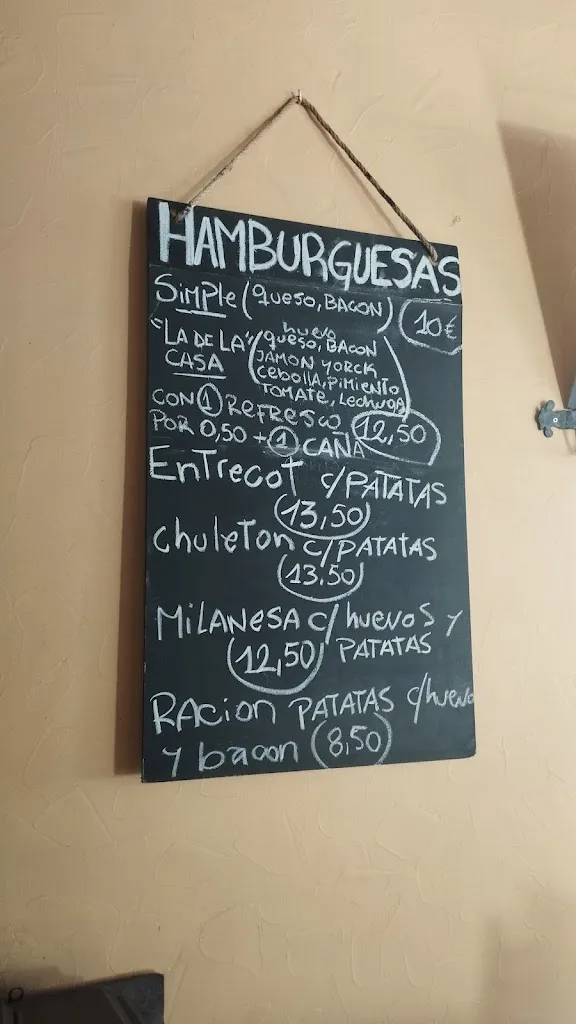 HAMBURGUESAS
SiMPLe (queso, BACON) 10€
huevo
"LA DE LA queso, BACON
CASA" JAMON YORCK
Cebolla, Pimiento
TOMATE, Lechuga
CON 1 REFRESCO 12,50
POR 0,50 + 1 CAÑA
EnTrecot c/PATATAS
13,50
chuleTon c/PATATAS
13.50
MiLANESA c/huevos y
12,50 PATATAS
RAcion PATATAS c/huevo
y bacon 8,50